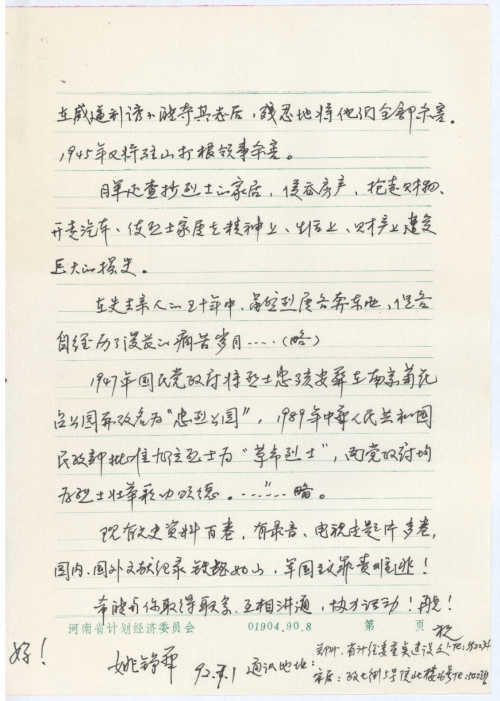 在威逼利诱不能夺其志后，残忍地将他们全部杀害。
1945年又将驻山打根领事杀害。
日军还查抄烈士的家居，侵吞房产，抢走财物、
开走汽车、使烈士家属在精神上、生活上、财产上遭受
巨大的损失。
在失去亲人的五十年中，虽然烈属各奔东西，但各
自经历了漫长的痛苦岁月……（略）
1947年国民党政府将烈士忠骸安葬在南京菊花
台公园并改名为“忠烈公园”，1989年中华人民共和国
民政部批准九位烈士为“革命烈士”，两党政府均
为烈士壮举歌功颂德。……”略。
现有文史资料百卷，有录音、电视专题片多卷，
国内、国外文献纪录铁证如山，军国主义罪责难逃！
希能与你取得联系，互相沟通，协力行动！再见！
河南省计划经济委员会 01904.90.8 第 页
祝
好！
姚铮华 92.9.1 通讯地址：
郑州.省计经委
宋居：政七街5号院北楼